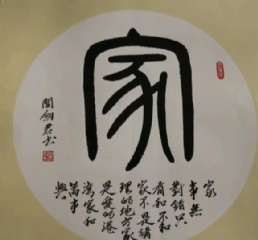 家
家
事無
對錯只
有和不和
家不是講
理的地方家
是愛的港
灣家和
萬事
興